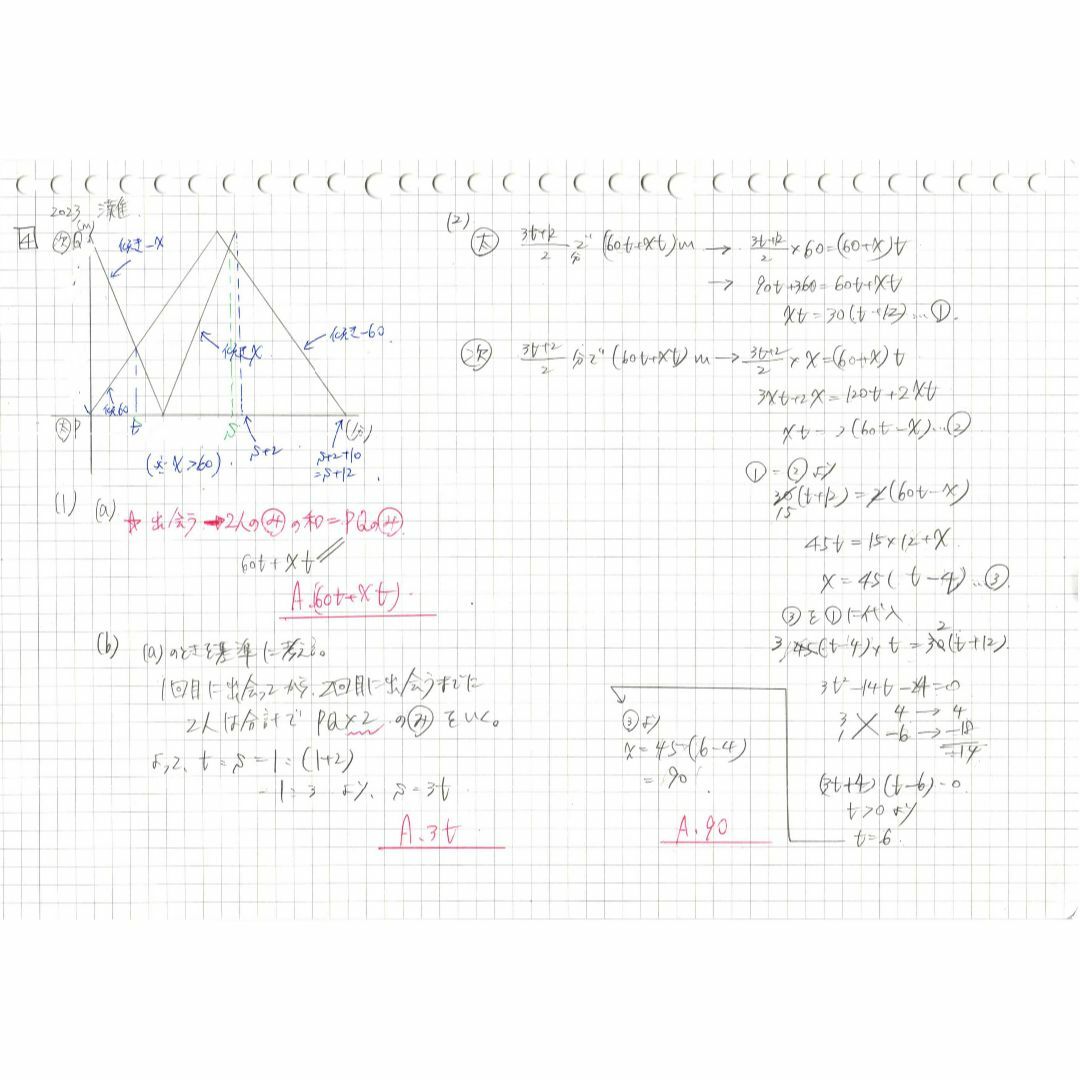 2023 灘
4
次 Q (m)
傾き-x
傾き60
傾きx
傾き-60
太 P
t
s
s+2
s+2+10
=s+12
(分)
(x>60)
(1) (a) ☆ 出会う → 2人のみの和=PQのみ
60t+xt
A.(60t+xt)
(b) (a)のときを基準に考える。
1回目に出会ってから、2回目に出会うまでに
2人は合計で PQ×2 のみをいく。
よって、t:s=1:(1+2)
=1:3 より、s=3t
A.3t
(2)
太 3t+12/2 分で (60t+xt)m → 3t+12/2 ×60=(60+x)t
→ 90t+360=60t+xt
xt=30(t+12)…①
次 3t+2/2 分で (60t+xt)m → 3t+2/2 ×x=(60+x)t
3xt+2x=120t+2xt
xt=2(60t-x)…②
①=②より
30(t+12)=2(60t-x)
15
45t=15×12+x
x=45(t-4)…③
③を①に代入
2
3 45(t-4)×t=30(t+12)
3t²-14t-24=0
3 4 → 4
1 -6 → -18
-14
(3t+4)(t-6)=0
t>0より
t=6
③より
x=45(6-4)
=90
A.90